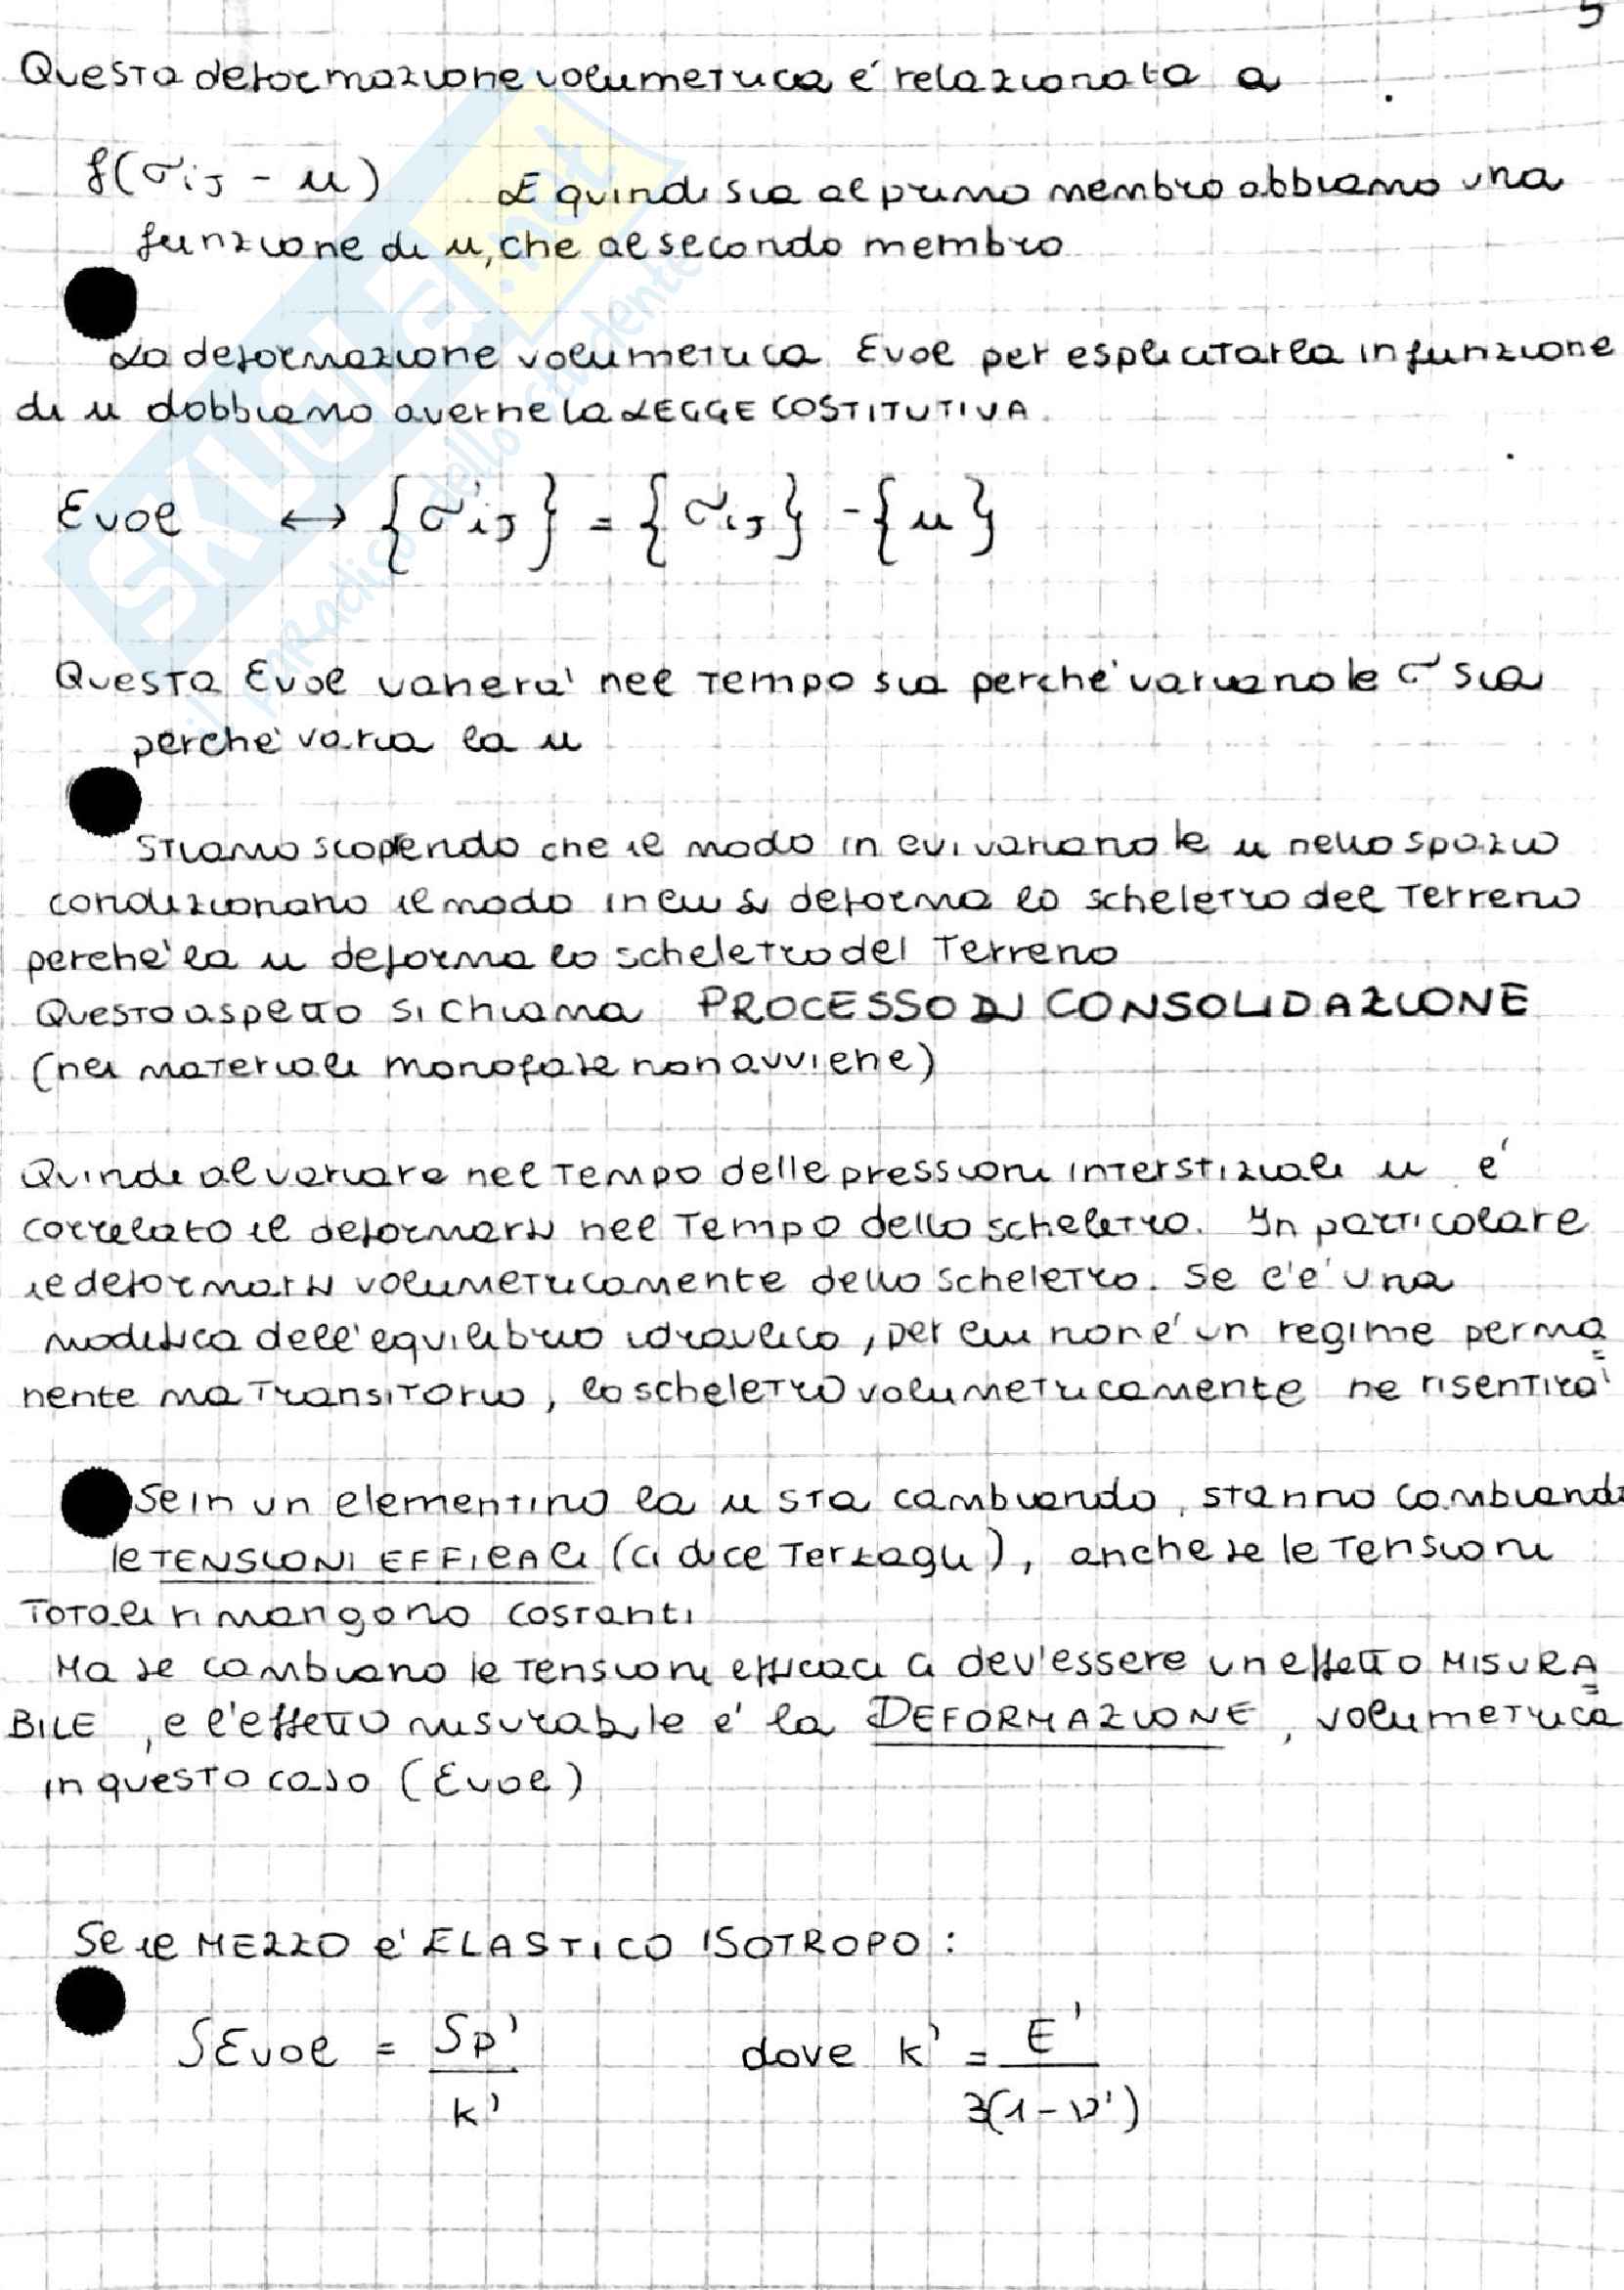 5
Questa deformazione volumetrica é relazionata a
f(σij - u) E quindi sia al primo membro abbiamo una
funzione di u, che al secondo membro
La deformazione volumetrica Evol per esplicitarla in funzione
di u dobbiamo averne la LEGGE COSTITUTIVA.
Evol ↔ {σ'ij} = {σij} - {u}
Questa Evol varierà nel tempo sia perchè variano le σ sia
perchè varia la u
Stiamo scoprendo che il modo in cui variano le u nello spazio
condizionano il modo in cui si deforma lo scheletro del terreno
perchè la u deforma lo scheletro del terreno
Questo aspetto si chiama PROCESSO DI CONSOLIDAZIONE
(nei materiali monofase non avviene)
Quindi al variare nel tempo delle pressioni interstiziali u é
correlato il deformarsi nel tempo dello scheletro. In particolare
il deformarsi volumetricamente dello scheletro. Se c'è una
modifica dell'equilibrio idraulico, per cui non é un regime perma=
nente ma transitorio, lo scheletro volumetricamente ne risentirà
Se in un elementino la u sta cambiando, stanno cambiando
le TENSIONI EFFICACI (ci dice Terzaghi), anche se le tensioni
totali rimangono costanti
Ma se cambiano le tensioni efficaci ci dev'essere un effetto MISURA=
BILE, e l'effetto misurabile é la DEFORMAZIONE, volumetrica
in questo caso (Evol)
Se il MEZZO é ELASTICO ISOTROPO:
δEvol = δp' / k' dove k' = E' / 3(1-ν')
SKUOLA.net
il paradiso dello studente